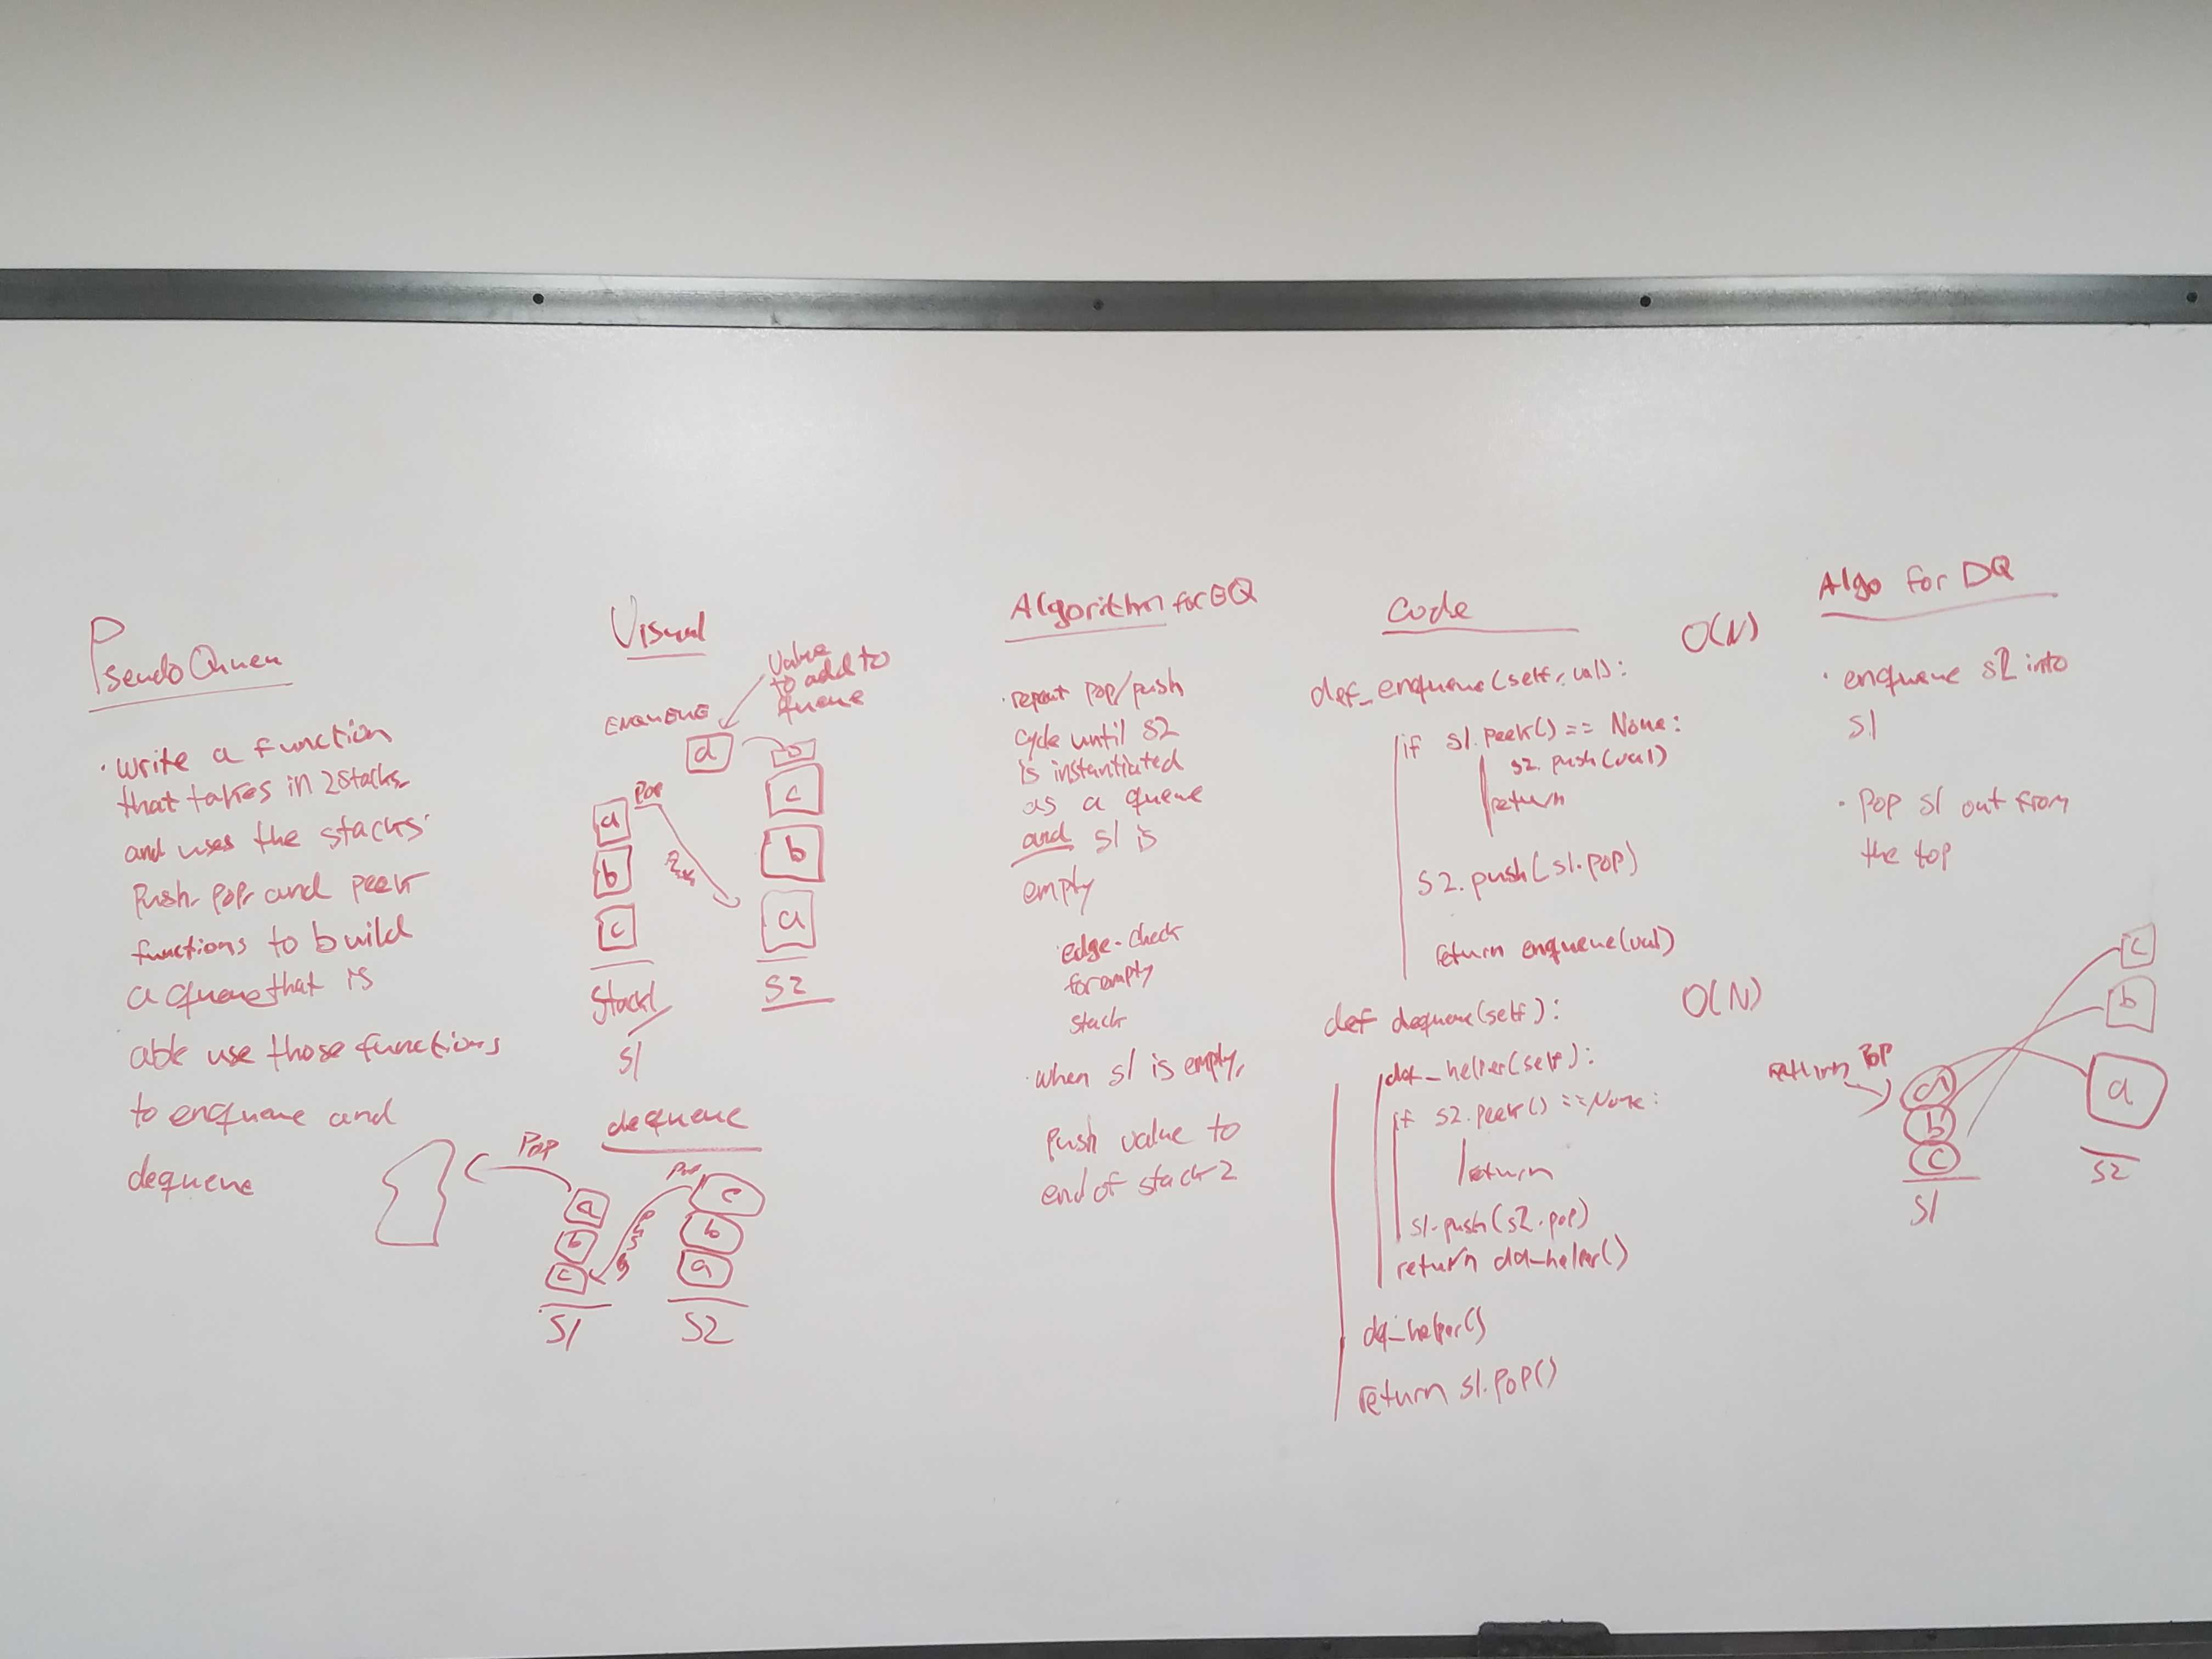 PseudoQueue
· write a function
that takes in 2 stacks
and uses the stacks
push, pop, and peek
functions to build
a queue that is
able use those functions
to enqueue and
dequeue
Visual
Value
to add to
queue
ENQUEUE
d
D
a
POP
c
b
b
c
a
Stack1
S2
S1
dequeue
POP
POP
a
c
b
b
c
a
S1
S2
Algorithm for EQ
· repeat pop/push
cycle until S2
is instantiated
as a queue
and s1 is
empty
· edge-check
for empty
stack
· when s1 is empty,
push value to
end of stack 2
Code
O(N)
def_enqueue(self, val):
if s1.peek() == None:
s2.push(val)
return
s2.push(s1.pop)
return enqueue(val)
def dequeue(self):
O(N)
def_helper(self):
if s2.peek() == None:
return
s1.push(s2.pop)
return dq_helper()
dq_helper()
return s1.pop()
Algo for DQ
· enqueue s2 into
s1
· pop s1 out from
the top
c
b
return POP
a
a
b
c
S1
S2